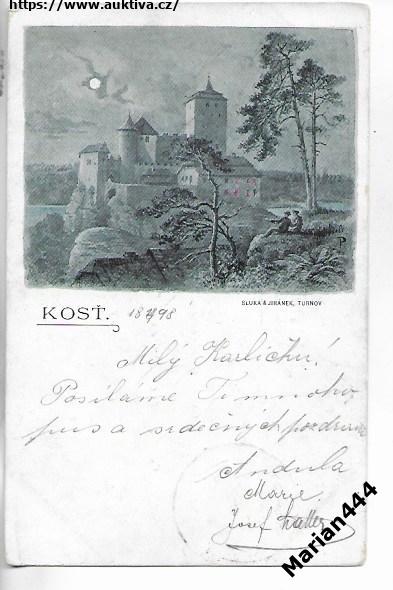 https://www.auktiva.cz/
SLUKA & JIRÁNEK, TURNOV
KOSŤ.
Milý Karlíčku!
Posíláme Ti mnoho
pus a srdečných pozdravů
Andula
Marie.
Josef
Marian444